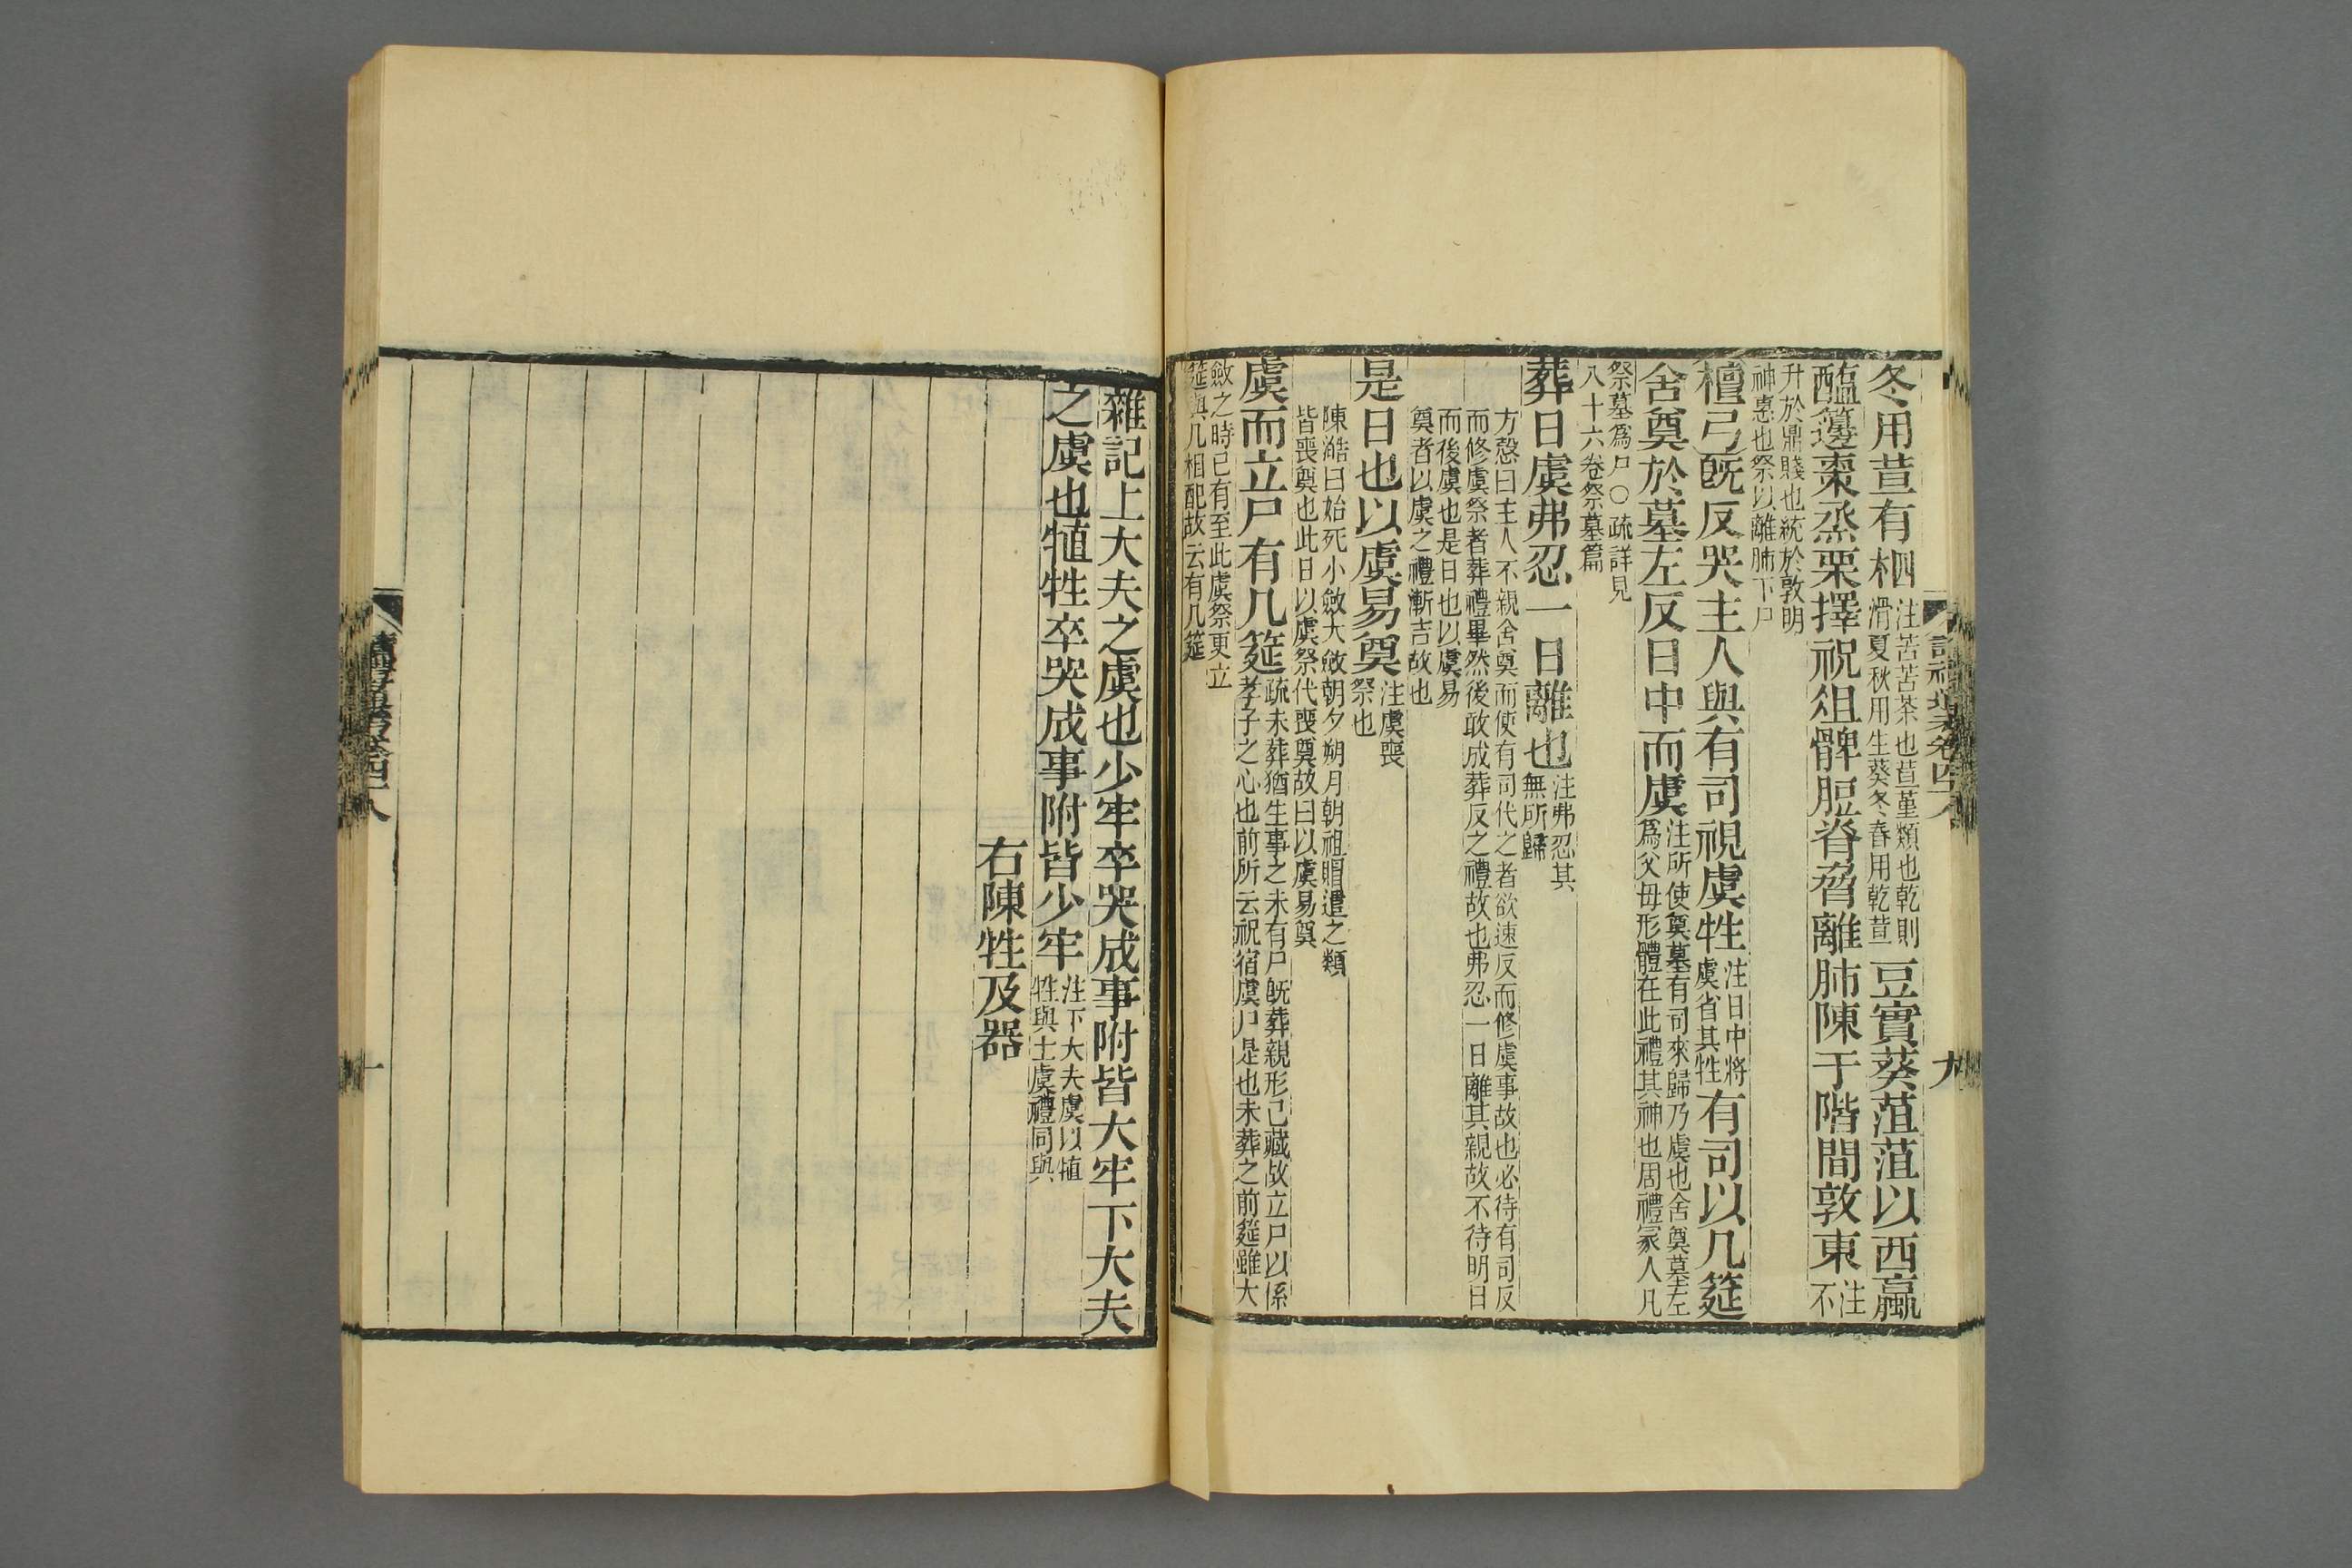 讀禮通考卷四十八　九
冬用荁有柶
注苦苦荼也荁菫類也乾則
滑夏秋用生葵冬春用乾荁
豆實葵菹菹以西蠃
醢籩棗烝栗擇祝俎髀脰脊脅離肺陳于階間敦東
注
不
升於鼎賤也統於敦明
神惠也祭以離肺下尸
檀弓旣反哭主人與有司視虞牲
注日中將
虞省其牲
有司以几筵
舍奠於墓左反日中而虞
注所使奠墓有司來歸乃虞也舍奠墓左
爲父母形體在此禮其神也周禮冢人凡
祭墓爲尸○疏詳見
八十六卷祭墓篇
葬日虞弗忍一日離也
注弗忍其
無所歸
方愨曰主人不親舍奠而使有司代之者欲速反而修虞事故也必待有司反
而修虞祭者葬禮畢然後敢成葬反之禮故也弗忍一日離其親故不待明日
而後虞也是日也以虞易
奠者以虞之禮漸吉故也
是日也以虞易奠
注虞喪
祭也
陳澔曰始死小斂大斂朝夕朔月朝祖賵遣之類
皆喪奠也此日以虞祭代喪奠故曰以虞易奠
虞而立尸有几筵
疏未葬猶生事之未有尸旣葬親形已藏故立尸以係
孝子之心也前所云祝宿虞尸是也未葬之前筵雖大
斂之時已有至此虞祭更立
筵與几相配故云有几筵
雜記上大夫之虞也少牢卒哭成事附皆大牢下大夫
之虞也犆牲卒哭成事附皆少牢
注下大夫虞以犆
牲與士虞禮同與
右陳牲及器
讀禮通考卷四十八　十